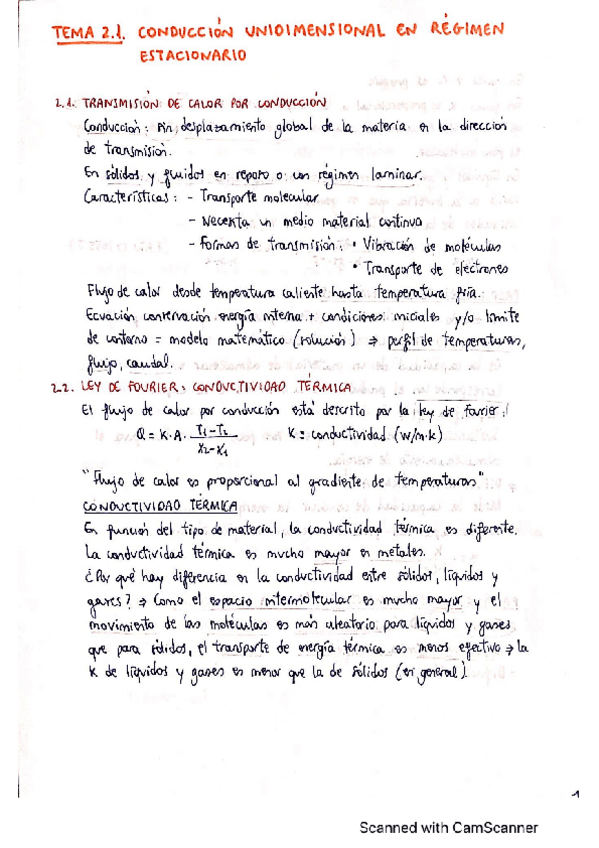 TEMA 2.1. CONDUCCIÓN UNIDIMENSIONAL EN RÉGIMEN
ESTACIONARIO
2.1. TRANSMISIÓN DE CALOR POR CONDUCCIÓN
Conducción: sin desplazamiento global de la materia en la dirección
de transmisión.
En sólidos y fluidos en reposo o con régimen laminar.
Características: - Transporte molecular
- Necesita un medio material continuo
- Formas de transmisión: • Vibración de moléculas
• Transporte de electrones
Flujo de calor desde temperatura caliente hasta temperatura fría.
Ecuación conservación energía interna + condiciones iniciales y/o límite
de contorno = modelo matemático (solución) ⇒ perfil de temperaturas,
flujo, caudal.
2.2. LEY DE FOURIER: CONDUCTIVIDAD TÉRMICA
El flujo de calor por conducción está descrito por la ley de Fourier:
Q = K·A· T1-T2 / X2-X1 K = conductividad (W/m·K)
"Flujo de calor es proporcional al gradiente de temperaturas"
CONDUCTIVIDAD TÉRMICA
En función del tipo de material, la conductividad térmica es diferente.
La conductividad térmica es mucho mayor en metales.
¿Por qué hay diferencia en la conductividad entre sólidos, líquidos y
gases? ⇒ Como el espacio intermolecular es mucho mayor y el
movimiento de las moléculas es más aleatorio para líquidos y gases
que para sólidos, el transporte de energía térmica es menos efectivo ⇒ la
K de líquidos y gases es menor que la de sólidos (en general)
1
Scanned with CamScanner